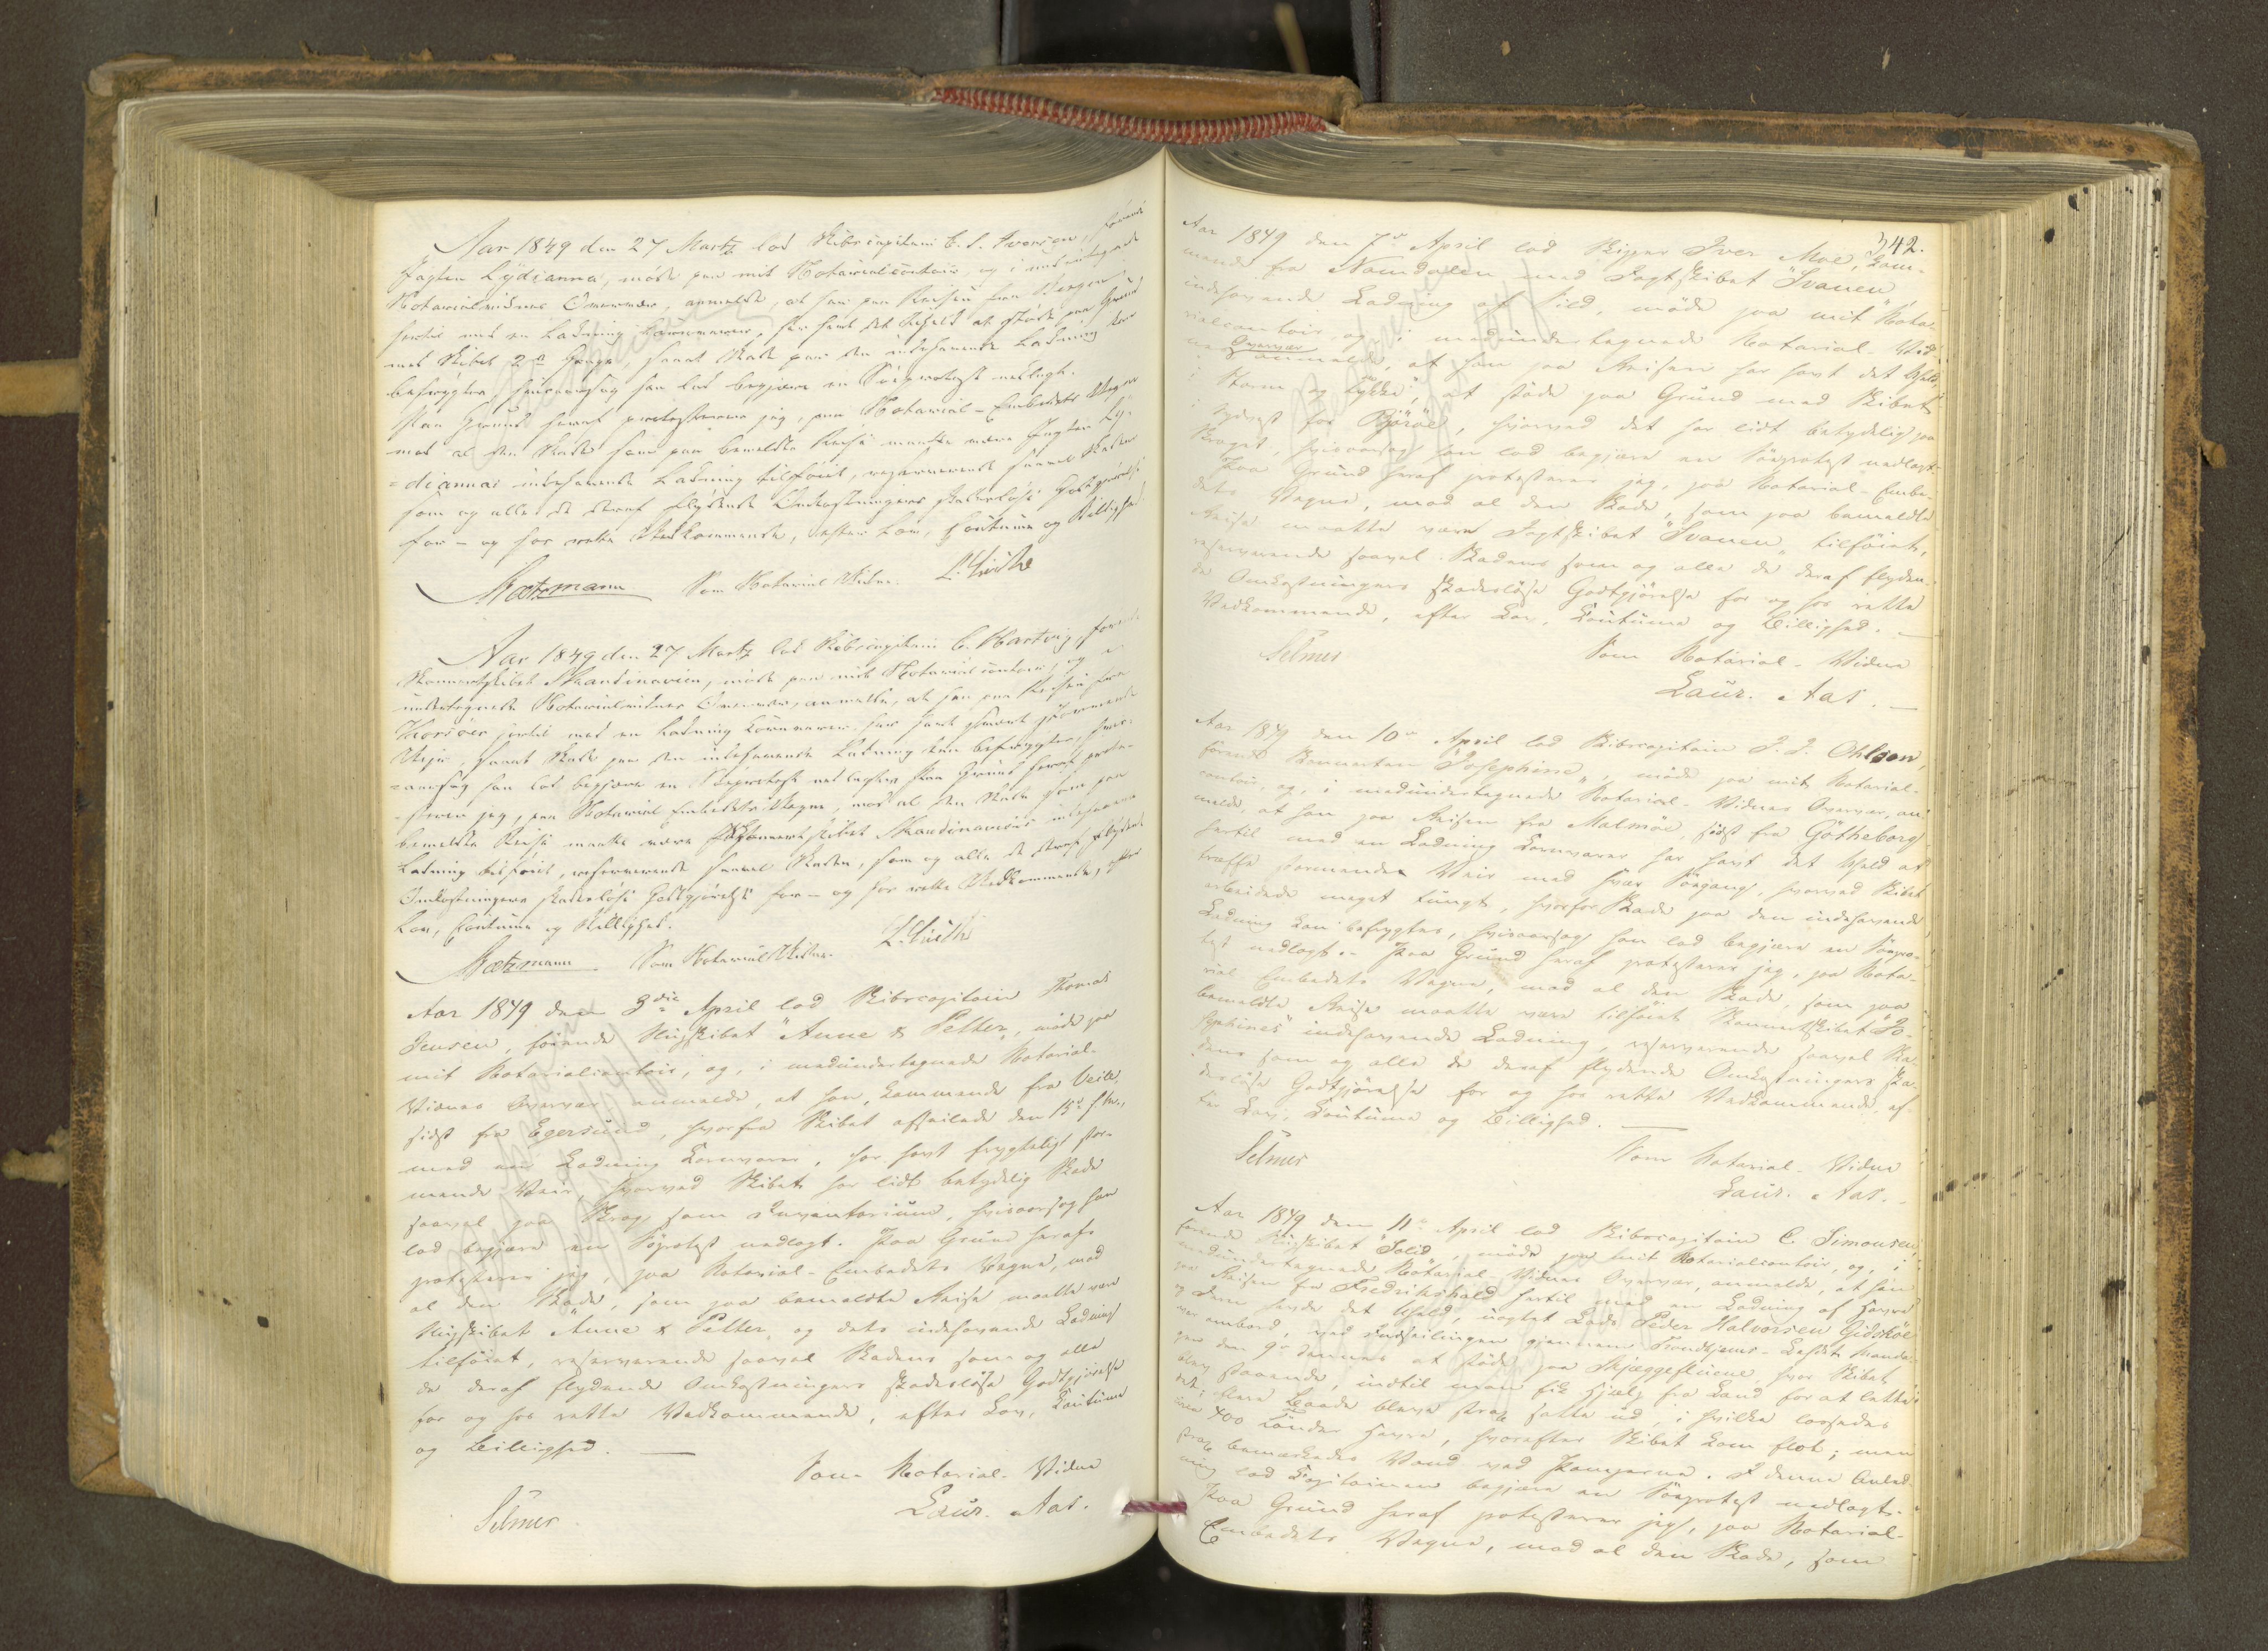 Aar 1849 den 27 Martz lod Skibscapitain C. S. Iversen, førende
Jagten Lydianna, møde paa mit Notarialcontoir, og i undertegnede
Notarialvidnes Overvær, anmelde, at han paa Reisen fra Bergen
hertil med en Ladning Kornvarer, har havt det Uheld at støde paa Grund
med Skibet 2de Gange, hvorved Skade paa den indehavende Ladning kan
befrygtes, hvisaarsag han lod begjære en Søeprotest nedlagt.
Paa Grund heraf protesterer jeg, paa Notarial-Embedets Vegne
mod al den Skade som paa bemeldte Reise maatte være Jagten Ly-
=diannas indehavende Ladning tilføiet, reserverende saavel Skaden
som og alle de deraf flydende Omkostningers skadesløse Godtgjørelse
for - og hos rette Vedkommende, efter Lov, Coutume og Billighed.
Som Notarial Vidne. L. Lüdhe
Aar 1849 den 27 Martz lod Skibscapitain C. Hartvig, førende
Skonnertskibet Skandinavien, møde paa mit Notarialcontoir, og i
undertegnede Notarialvidnes Overvær, anmelde, at han paa Reisen fra
Korsöer hertil med en Ladning Kornvarer, har havt svært stormende
Veir, hvorved Skade paa den indehavende Ladning kan befrygtes, hvis-
=aarsag han lod begjære en Søeprotest nedlagt. Paa Grund heraf prote-
=sterer jeg, paa Notarial Embedets Vegne, mod al den Skade som paa
bemeldte Reise maatte være Skonnertskibet Skandinaviens indehavende
Ladning tilføiet, reserverende saavel Skaden, som og alle de deraf flydende
Omkostningers skadesløse Godtgjørelse for - og hos rette Vedkommende, efter
Lov, Coutume og Billighed.
Som Notarial Vidne. L. Lüdhe
Aar 1849 den 3die April lod Skibscapitain Thomas
Jensen, førende Slupskibet "Anne & Petter", møde paa
mit Notarialcontoir, og, i medundertegnede Notarial-
Vidnes Overvær, anmelde, at han, kommende fra Veile,
sidst fra Egersund, hvorfra Skibet afseilede den 15d f. M.,
med en Ladning Kornvarer, har havt frygteligt stor-
mende Veir, hvorved Skibet har lidt betydelig Skade
saavel paa Skrog som Inventarium, hvisaarsag han
lod begjære en Søprotest nedlagt. Paa Grund heraf
protesterer jeg, paa Notarial-Embedets Vegne, mod
al den Skade, som paa bemeldte Reise maatte være
Slupskibet Anne & Petter og dets indehavende Ladning
tilføiet, reserverende saavel Skadens som og alle
de deraf flydende Omkostningers skadesløse Godtgjørelse
for og hos rette Vedkommende, efter Lov, Coutume
og Billighed. —
Som Notarial-Vidne
Selmer Laur. Aas.
342.
Aar 1849 den 7de April lod Skipper Iver Moe, kom-
mende fra Namdalen med Jagtskibet "Svanen"
indehavende Ladning af Sild, møde paa mit Nota-
rialcontoir, og i medundertegnede Notarial-Vid-
nes Overvær anmelde, at han paa Reisen har havt det Uheld
i Storm og Tykke, at støde paa Grund med Skibet
i Sydvest for Björöe, hvorved det har lidt betydelig paa
Skroget, hvisaarsag han lod begjære en Søeprotest nedlagt.
Paa Grund heraf protesterer jeg, paa Notarial-Embe-
dets Vegne, mod al den Skade, som paa bemeldte
Reise maatte være Jagtskibet "Svanen" tilføiet,
reserverende saavel Skadens som og alle de deraf flyden-
de Omkostningers skadesløse Godtgjørelse for og hos rette
Vedkommende, efter Lov, Coutume og Billighed. —
Selmer Som Notarial-Vidne
Laur. Aas. —
Aar 1849 den 10de April lod Skibscapitain J. J. Ohlson,
førende Skonnerten "Josephine", møde paa mit Notarial-
contoir, og, i medundertegnede Notarial-Vidnes Overvær, an-
melde, at han paa Reisen fra Malmöe, sidst fra Götheborg
hertil med en Ladning Kornvarer har havt det Uheld at
træffe stormende Veir med svær Søegang, hvorved Skibet
arbeidede meget tungt, hvorfor Skade paa den indehavende
Ladning kan befrygtes, hvisaarsag han lod begjære en Søepro-
test nedlagt. - Paa Grund heraf protesterer jeg, paa Nota-
rial Embedets Vegne, mod al den Skade, som paa
bemeldte Reise maatte være tilføiet Skonnertskibet "Jo-
sephines" indehavende Ladning, reserverende saavel Ska-
dens som og alle de deraf flydende Omkostningers ska-
desløse Godtgjørelse for og hos rette Vedkommende, ef-
ter Lov, Coutume og Billighed. —
Selmer Som Notarial-Vidne
Laur. Aas. -
Aar 1849 den 11te April lod Skibscapitain C. Simonsen,
førende Slupskibet "Solid", møde paa mit Notarialcontoir, og, i
medundertegnede Notarial-Vidnes Overvær, anmelde, at han
paa Reisen fra Fredrikshald hertil med en Ladning af Havre
havde det Uheld, uagtet Lods Peder Halvorsen Gidskøe
var ombord, ved Indseilingen gjennem Trondhjems-Leden
den 9de dennes at støde paa Skjæggefluene, hvor Skibet
blev staaende, indtil man fik Hjælp fra Land for at lette
det; flere Baade bleve strax satte ud, i hvilke lossedes
circa 400 Tønder Havre, hvorefter Skibet kom flot; men
strax bemærkedes Vand ved Pumperne. I denne Anled-
ning lod Capitainen begjære en Søeprotest nedlagt.
Paa Grund heraf protesterer jeg, paa Notarial-
Embedets Vegne, mod al den Skade, som